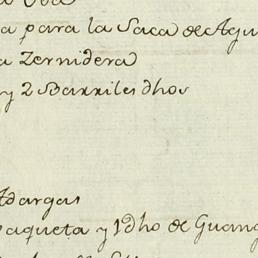 a para la Saca de Agu
a Zernidera
y 2 Barriles dhos
Adargas
aqueta y 1 dho de Guang